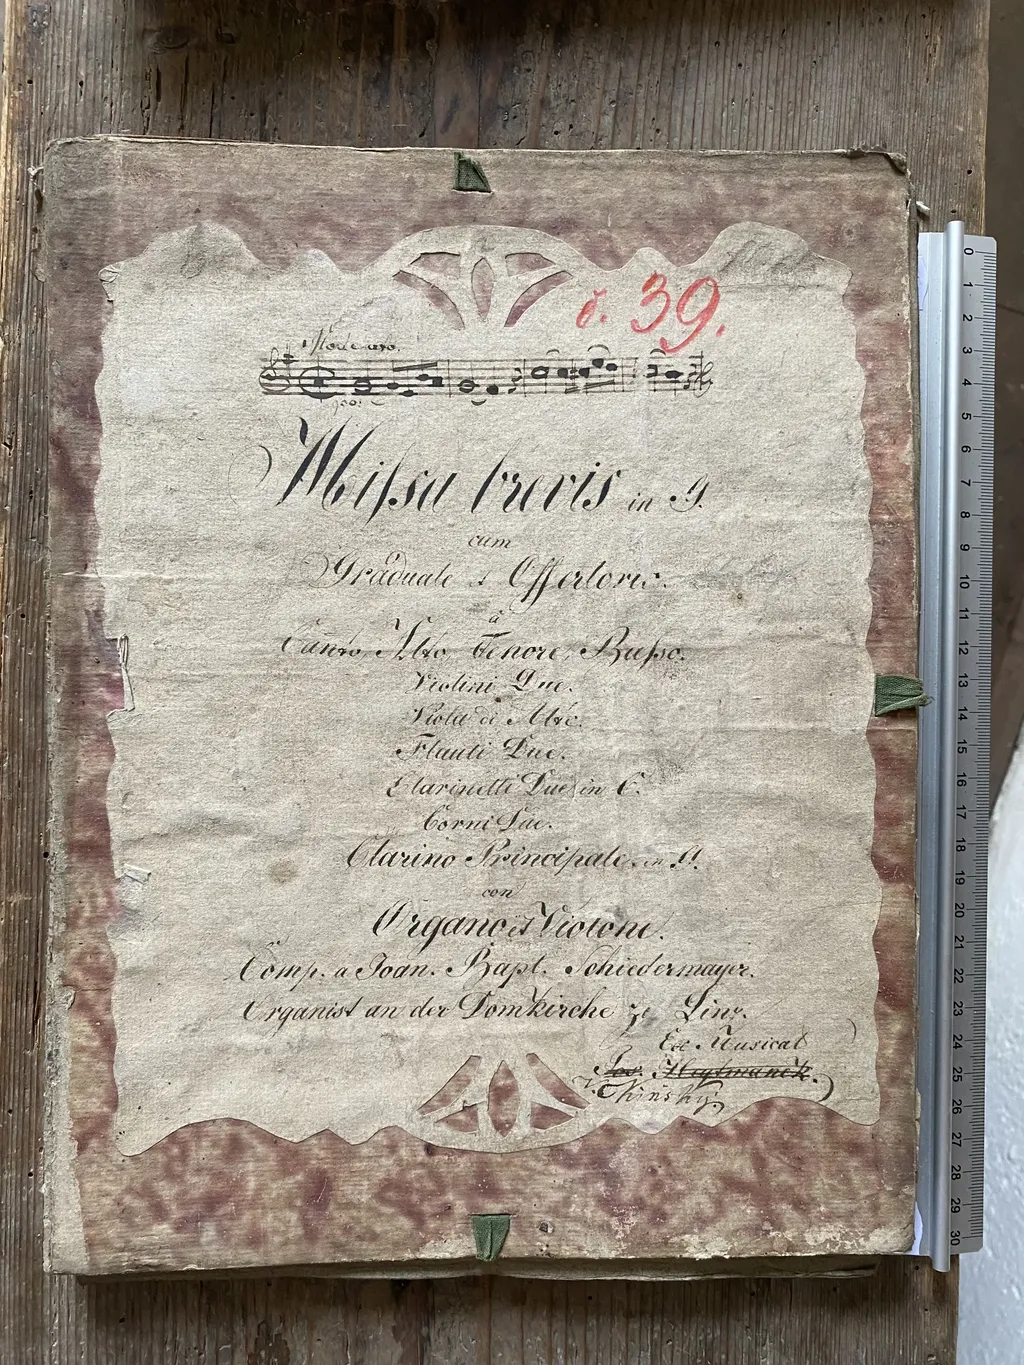 č. 39.
Moderato.
Missa brevis in G.
cum
Graduale et Offertorio.
à
Canto, Alto, Tenore, Basso.
Violini Due.
Viola di Alto.
Flauti Due.
Clarinetti Due in C.
Corni Due.
Clarino Principale in G.
con
Organo et Violone.
Comp. a Joan. Bapt. Schiedermayer.
Organist an der Domkirche zu Linz.
Ex Musical
0 1 2 3 4 5 6 7 8 9 10 11 12 13 14 15 16 17 18 19 20 21 22 23 24 25 26 27 28 29 30